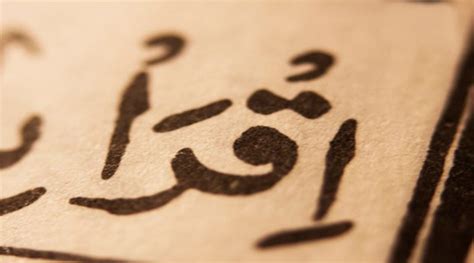 اِقْرَأْ